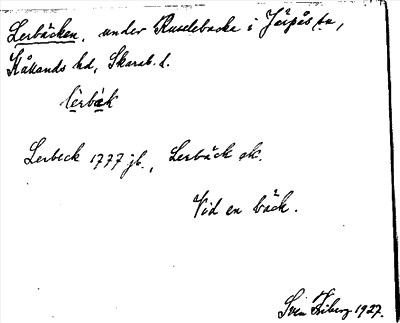 Lerbäcken, under Ruselebacke i Järpås sn,
Kållands hd, Skarab. l.
lèrbǽk
Lerbeck 1777 jb., Lerbäck ek.
Vid en bäck.
Sven Friberg 1927.